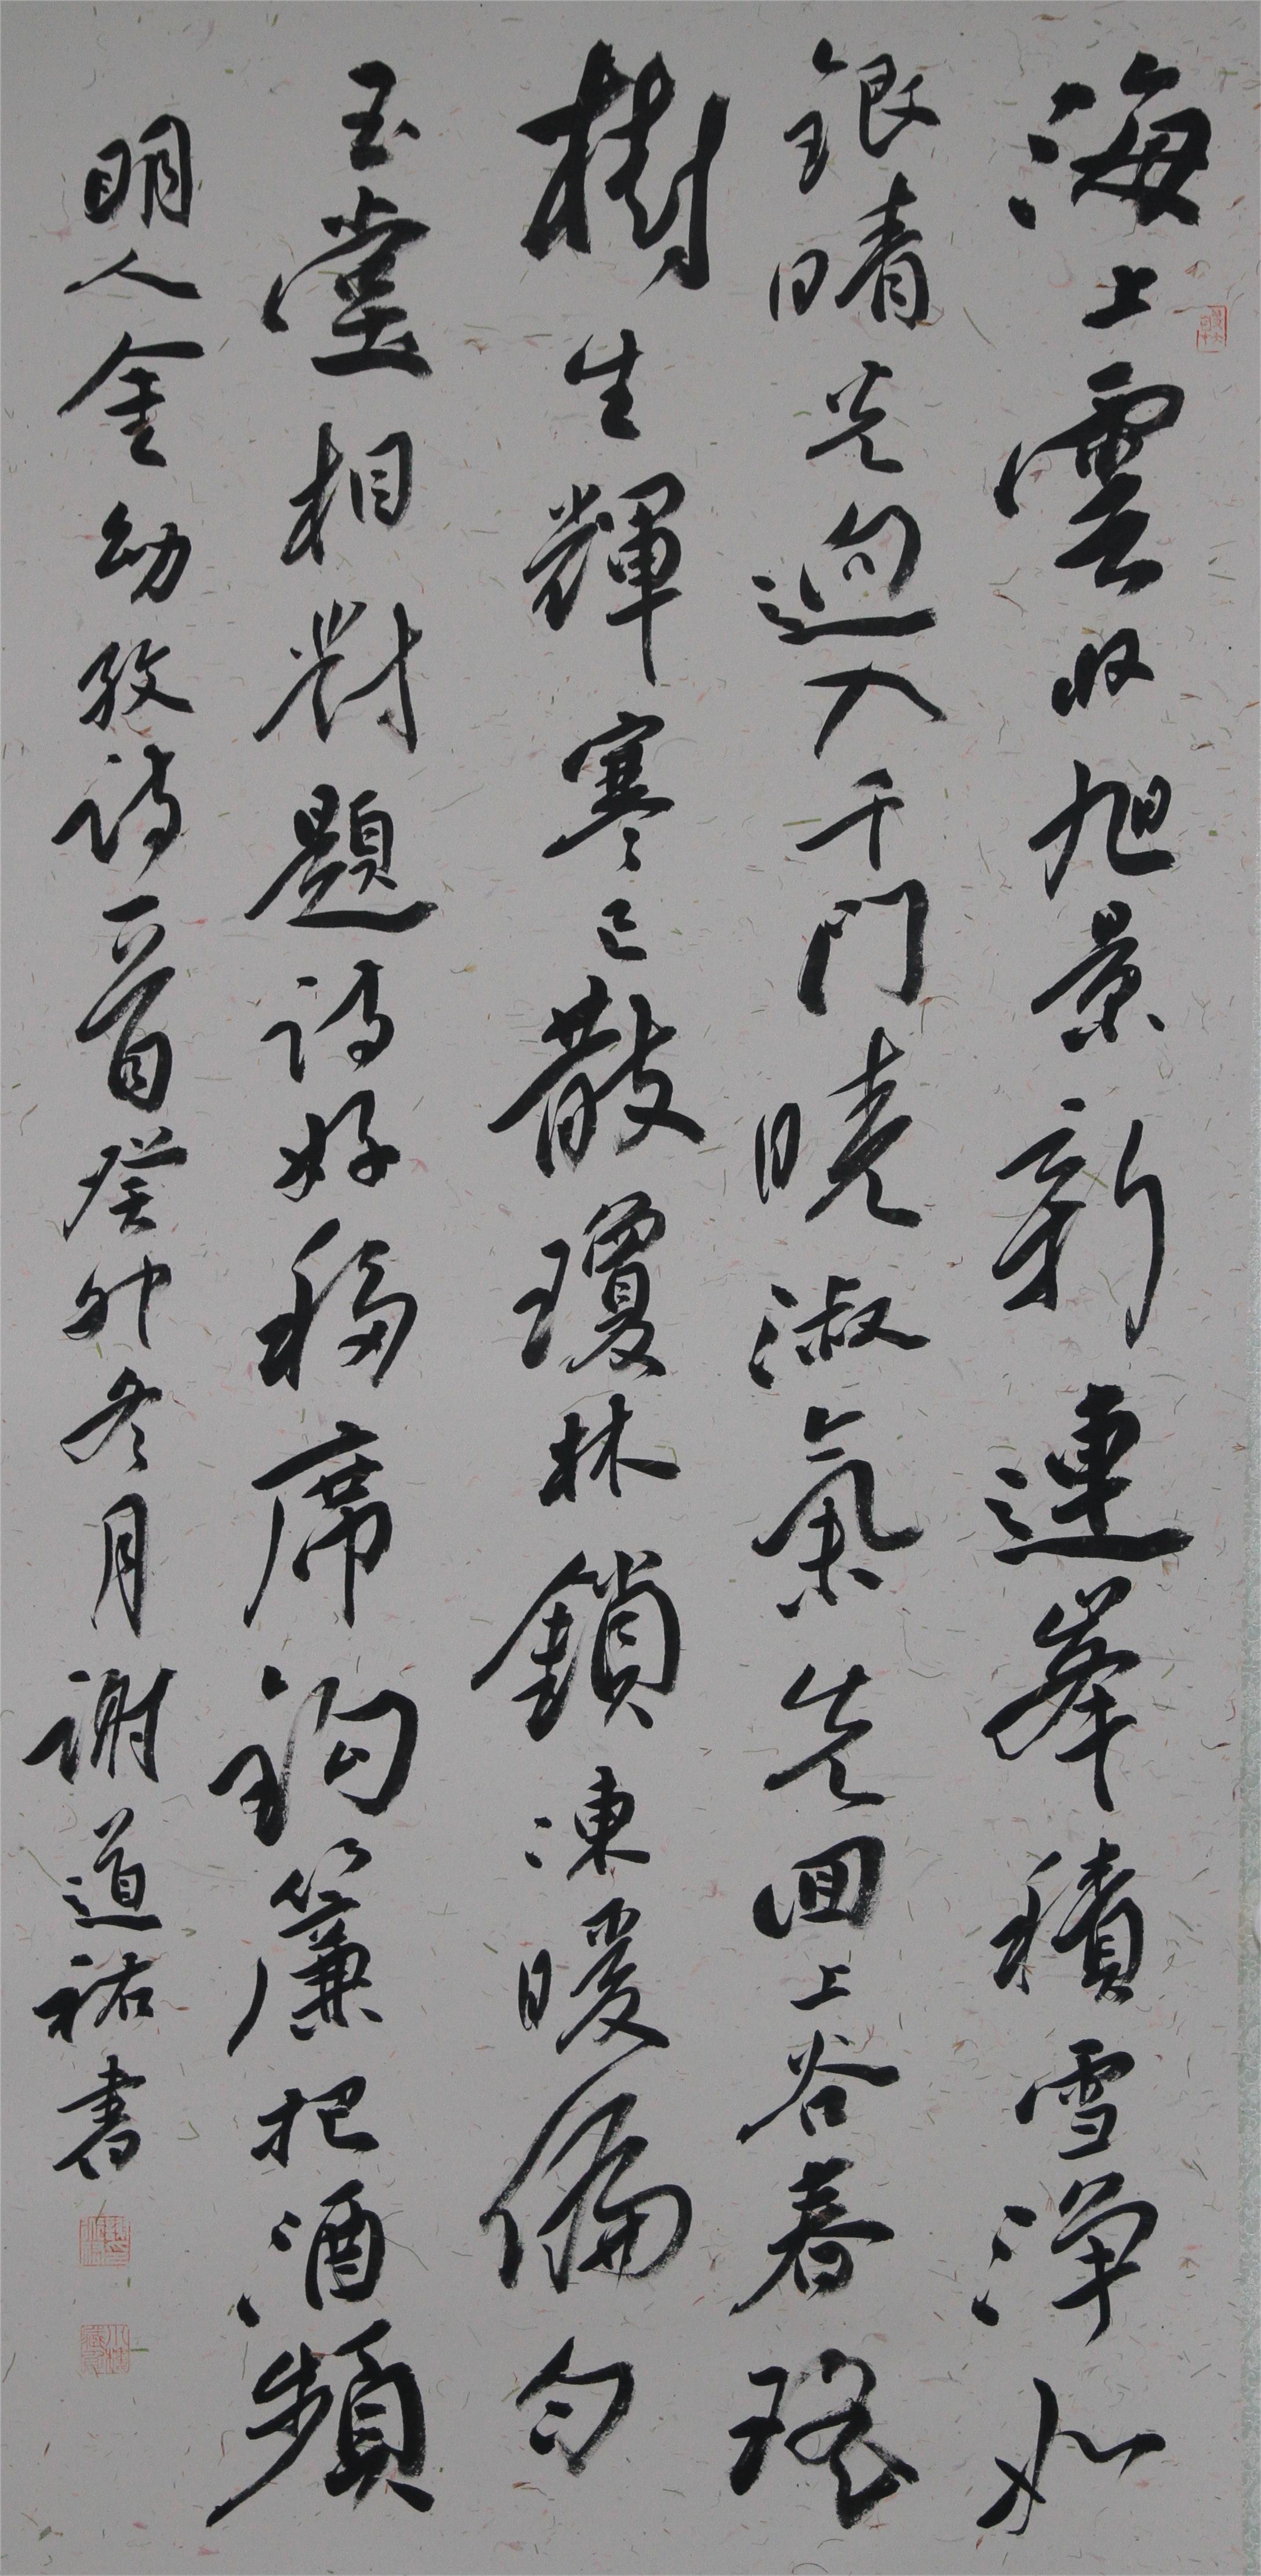 海上雲收旭景新連峯積雪淨如
銀晴光迥入千門曉淑氣先回上谷春瑤
樹生輝寒已散瓊林鎖凍暖偏勻
玉堂相對題詩好移席鈎簾把酒頻
明人金幼孜詩一首癸卯冬月謝道祐書